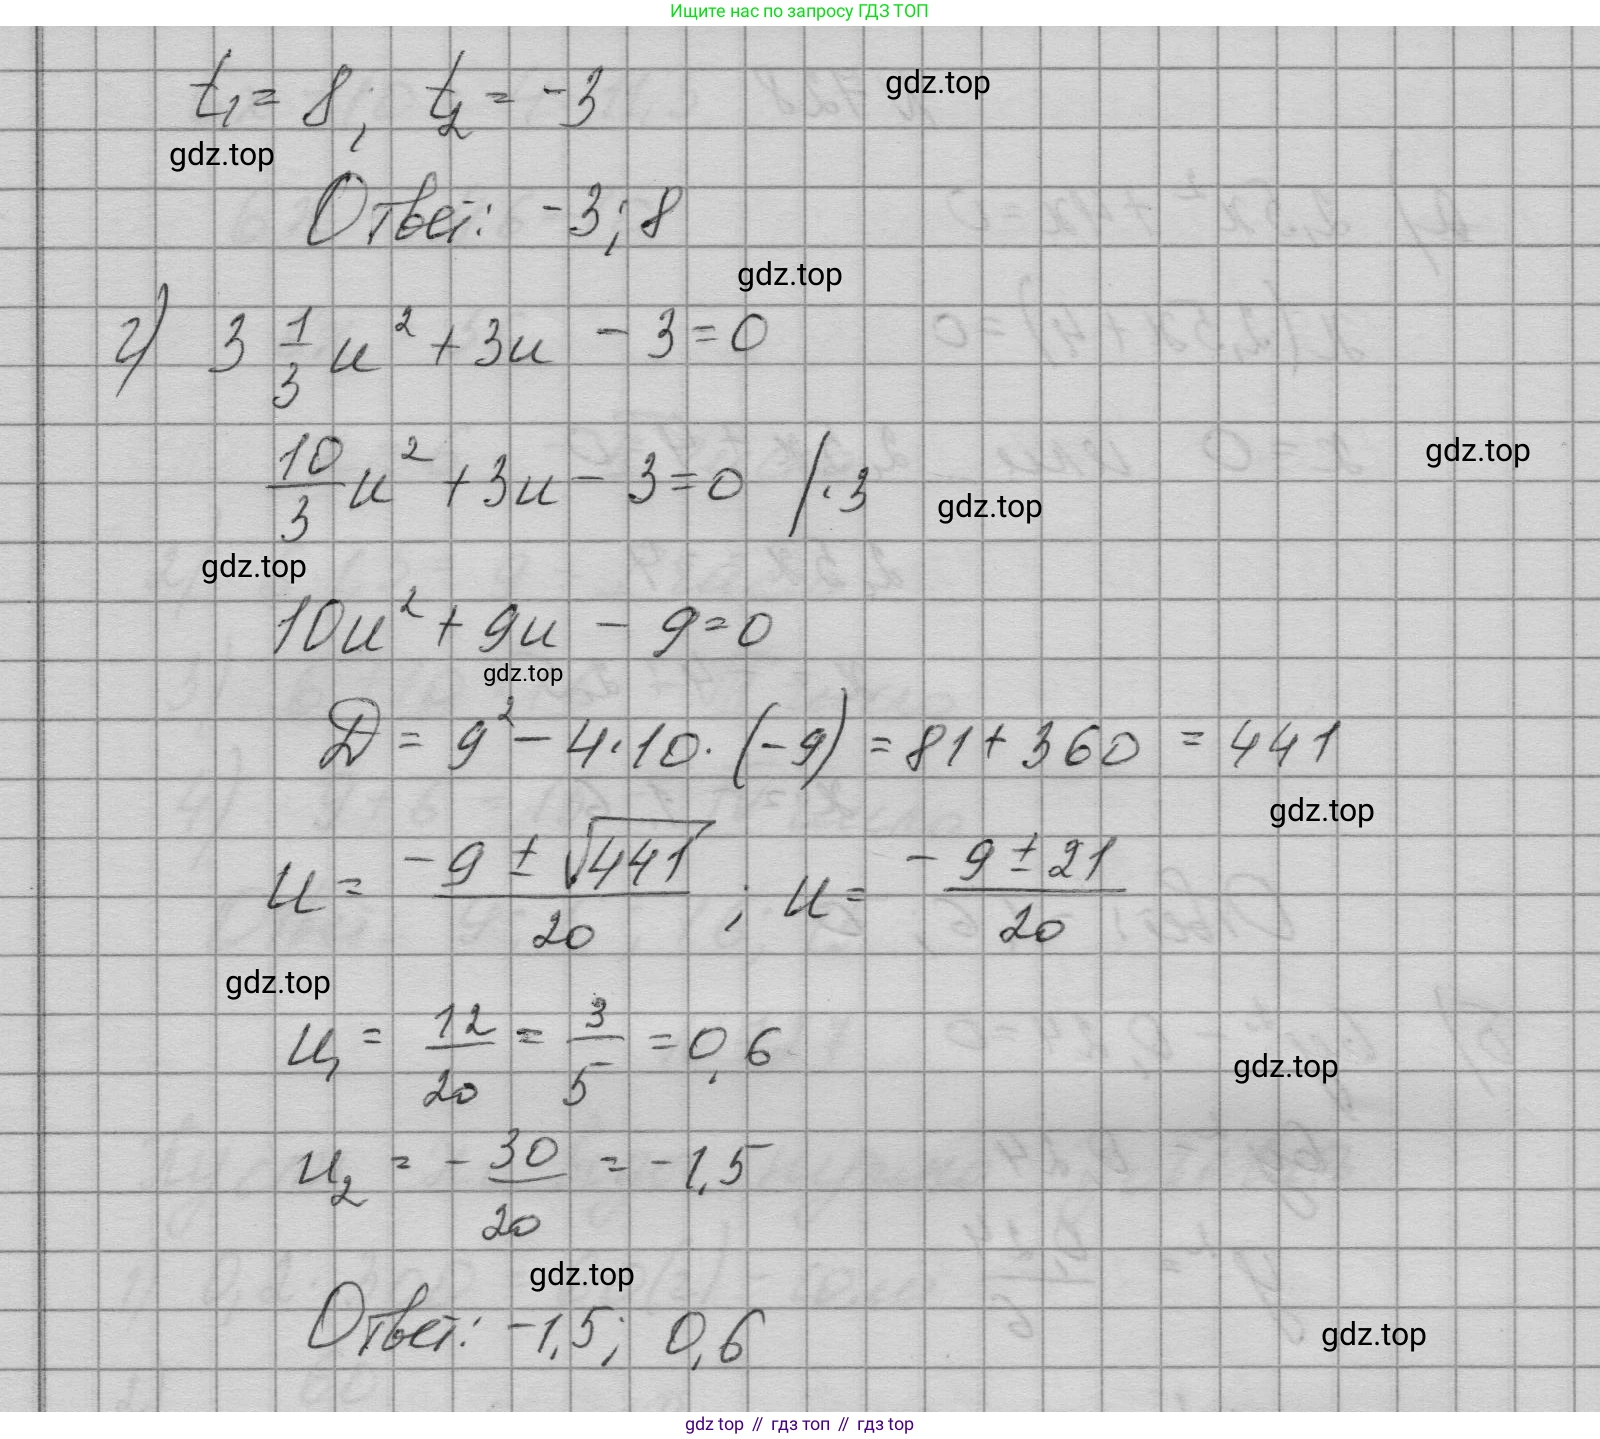 Ищите нас по запросу ГДЗ ТОП
t₁ = 8; t₂ = -3
gdz.top
gdz.top
Ответ: -3; 8
gdz.top
г) 3 1/3 u² + 3u - 3 = 0
10/3 u² + 3u - 3 = 0 /·3
gdz.top
gdz.top
gdz.top
10u² + 9u - 9 = 0
gdz.top
D = 9² - 4·10·(-9) = 81 + 360 = 441
gdz.top
u = (-9 ± √441)/20; u = (-9 ± 21)/20
gdz.top
u₁ = 12/20 = 3/5 = 0,6
gdz.top
u₂ = -30/20 = -1,5
gdz.top
Ответ: -1,5; 0,6
gdz.top
gdz top // гдз топ // гдз top